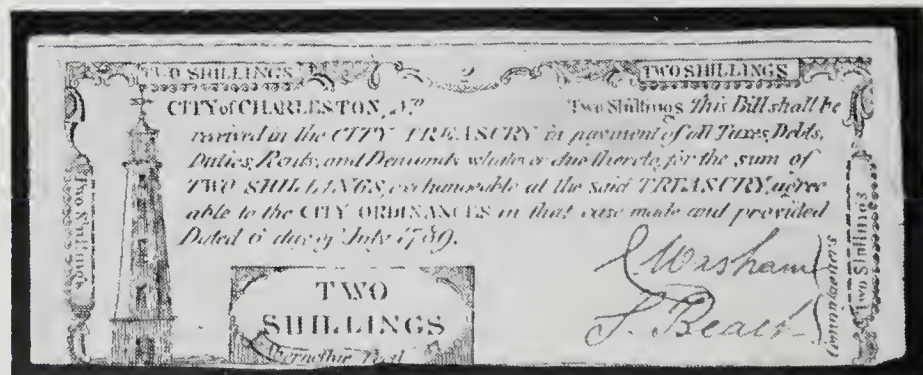 TWO SHILLINGS 2 TWO SHILLINGS
CITY of CHARLESTON, No Two Shillings This Bill shall be
received in the CITY TREASURY in payment of all Taxes, Debts,
Duties, Rents, and Demands whatever due thereto, for the sum of
TWO SHILLINGS, exchangeable at the said TREASURY, agree
able to the CITY ORDINANCES in that case made and provided
Dated 6 day of July 1789.
Two Shillings
TWO
SHILLINGS
S. Beach
Commissioners
Two Shillings